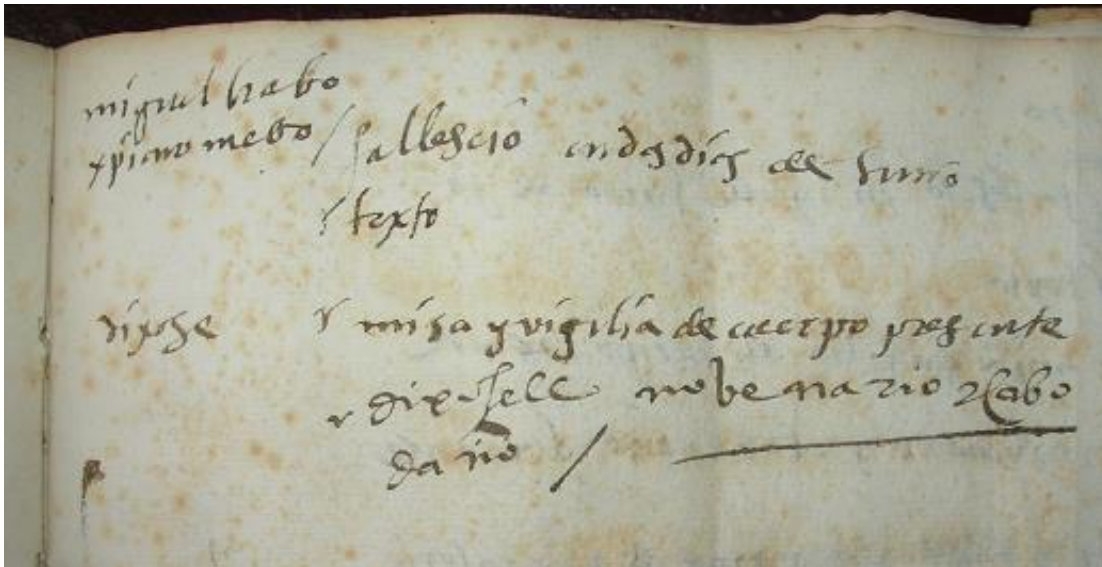 miguel brabo
xpiano nuebo / fallescio en dos dias de Junio
r texto
dixose r misa y vigilia de cuerpo presente
r dixosele nobenario y cabo
daño /